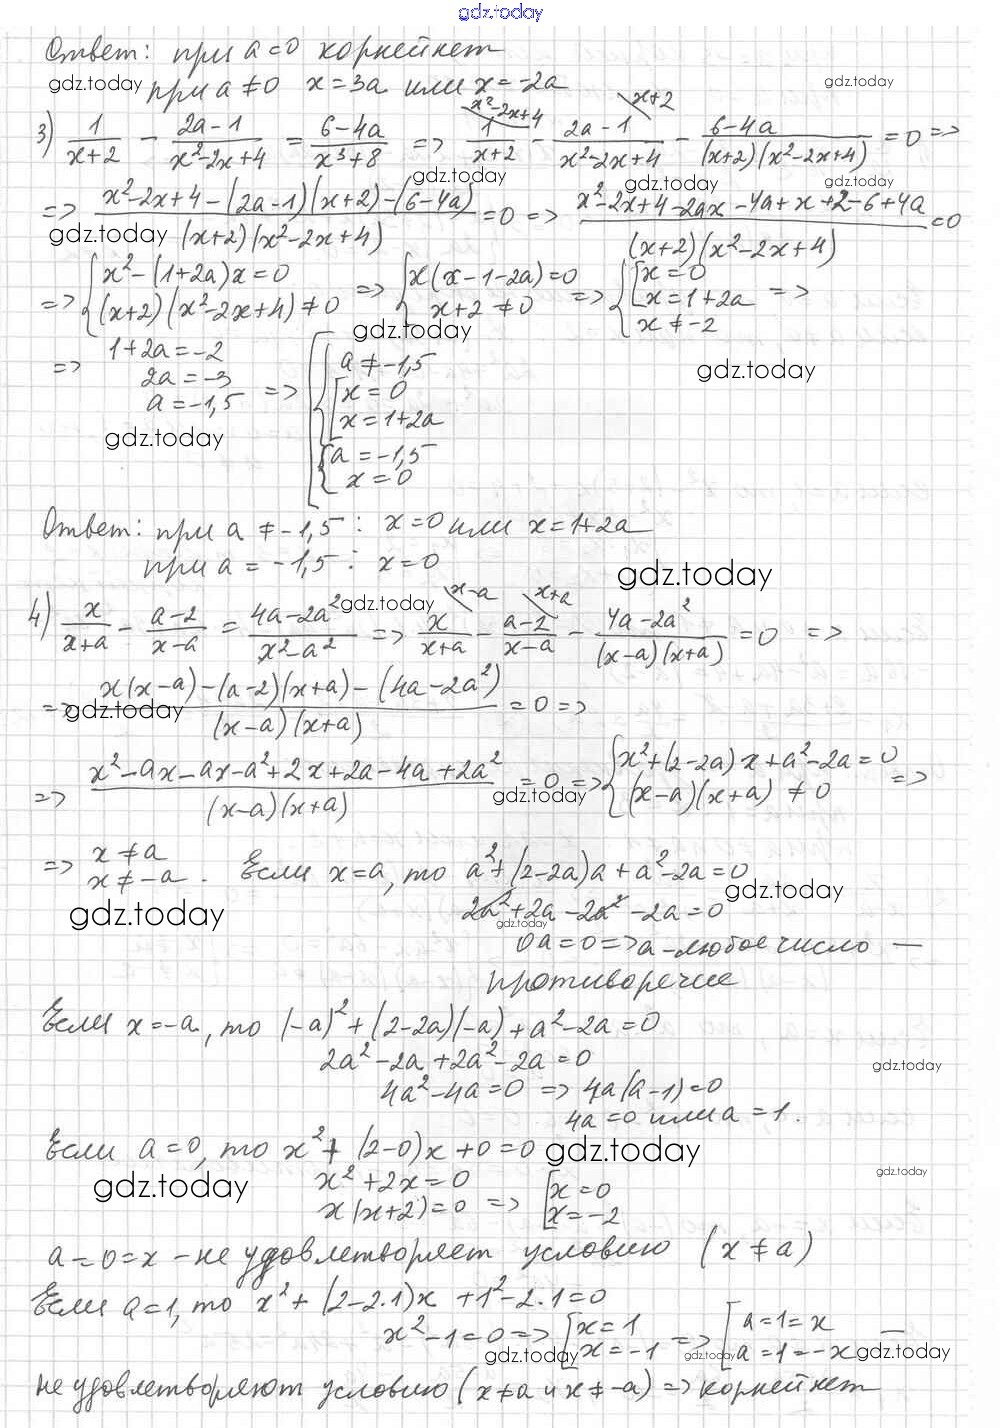 gdz.today
Ответ: при a=0 корней нет
gdz.today при a≠0 x=3a или x=-2a gdz.today
3) 1/(x+2) - (2a-1)/(x²-2x+4) = (6-4a)/(x³+8) => 1/(x+2) (x²-2x+4) - (2a-1)/(x²-2x+4) (x+2) - (6-4a)/((x+2)(x²-2x+4)) = 0 =>
gdz.today gdz.today gdz.today
=> (x²-2x+4-(2a-1)(x+2)-(6-4a))/((x+2)(x²-2x+4)) = 0 => (x²-2x+4-2ax-4a+x+2-6+4a)/((x+2)(x²-2x+4)) = 0
gdz.today
=> { x²-(1+2a)x=0 ; (x+2)(x²-2x+4)≠0 => { x(x-1-2a)=0 ; x+2≠0 => { [ x=0 ; x=1+2a ; x≠-2 =>
gdz.today
=> 1+2a=-2
2a=-3
a=-1,5 => [ { a≠-1,5 ; [ x=0 ; x=1+2a
{ a=-1,5 ; x=0
gdz.today
gdz.today
Ответ: при a≠-1,5: x=0 или x=1+2a
при a=-1,5: x=0
gdz.today
4) x/(x+a) - (a-2)/(x-a) = (4a-2a²)/(x²-a²) => x/(x+a) (x-a) - (a-2)/(x-a) (x+a) - (4a-2a²)/((x-a)(x+a)) = 0 =>
gdz.today
=> (x(x-a)-(a-2)(x+a)-(4a-2a²))/((x-a)(x+a)) = 0 =>
gdz.today
=> (x²-ax-ax-a²+2x+2a-4a+2a²)/((x-a)(x+a)) = 0 => { x²+(2-2a)x+a²-2a=0 ; (x-a)(x+a)≠0 =>
gdz.today
=> x≠a
x≠-a. Если x=a, то a²+(2-2a)a+a²-2a=0
gdz.today
2a²+2a-2a²-2a=0
gdz.today
gdz.today
0a=0 => a-любое число —
противоречие
Если x=-a, то (-a)²+(2-2a)(-a)+a²-2a=0
2a²-2a+2a²-2a=0
gdz.today
4a²-4a=0 => 4a(a-1)=0
4a=0 или a=1.
Если a=0, то x²+(2-0)x+0=0 gdz.today
gdz.today
x²+2x=0
gdz.today
x(x+2)=0 => [ x=0 ; x=-2
a=0=x - не удовлетворяет условию (x≠a)
Если a=1, то x²+(2-2·1)x+1²-2·1=0
x²-1=0 => [ x=1 ; x=-1 => [ a=1=x ; a=1=-x —
gdz.today gdz.today gdz.today
не удовлетворяют условию (x≠a и x≠-a) => корней нет